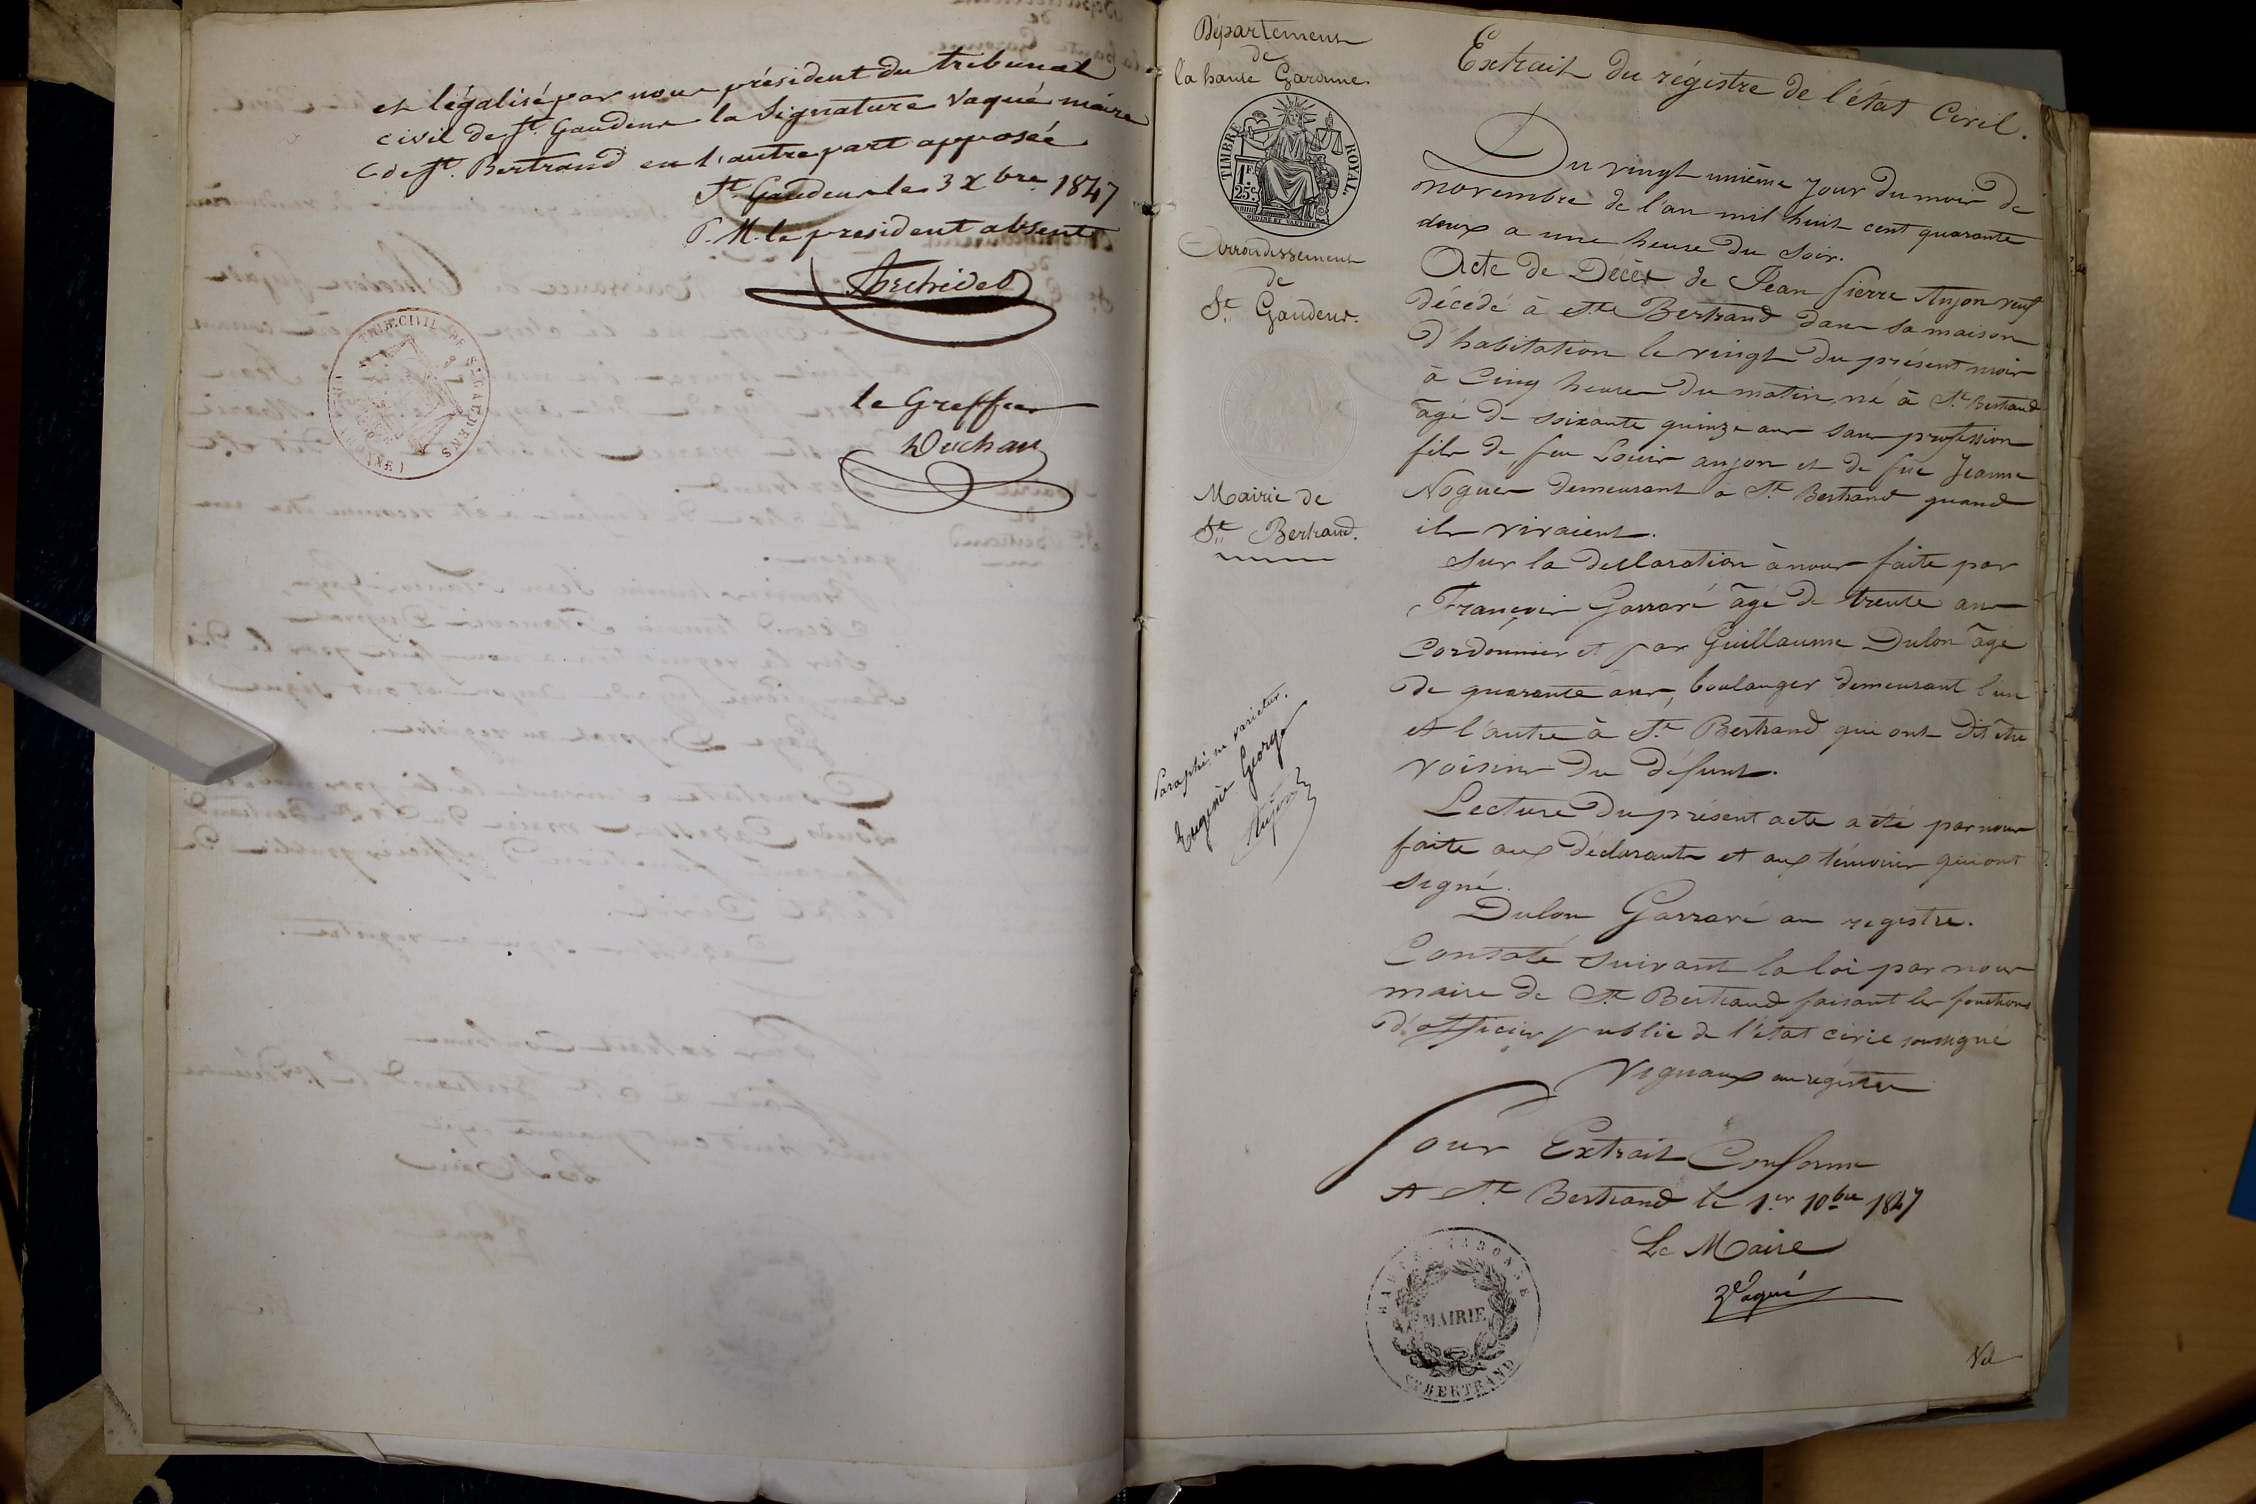 et légalisé par nous président du tribunal
civil de St. Gaudens la Signature Vaqué maire
de St. Bertrand en l'autre part apposée
St. Gaudens le 3 Xbre 1847
P. M. le président absent
le Greffier
Duchan
TRIB. CIVIL DE ST GAUDENS
Département
de
la haute Garonne
TIMBRE ROYAL.
1F.
25c.
Arrondissement
de
St. Gaudens.
Mairie de
St. Bertrand.
Paraphé ne varietur.
Eugénie George
Anjon
Extrait du régistre de l'état Civil.
Du vingt unième jour du mois de
novembre de l'an mil huit cent quarante
deux a une heure du soir.
Acte de Décès de Jean Pierre Anjon veuf
décédé à St. Bertrand dans sa maison
d'habitation le vingt du présent mois
à cinq heures du matin, né à St. Bertrand
âgé de soixante quinze ans sans profession
fils de feu Louis anjon et de fue Jeanne
Nogues demeurant à St. Bertrand quand
ils vivaient.
Sur la declaration à nous faite par
François Garraré âgé de trente ans
Cordonnier et par Guillaume Dulon âgé
de quarante ans, boulanger demeurant l'un
et l'autre à St. Bertrand qui ont dit être
voisins du défunt.
Lecture du présent acte a été par nous
faite aux déclarants et aux témoins qui ont
signé.
Dulon Garraré au registre.
Constaté suivant la loi par nous
maire de St. Bertrand faisant les fonctions
d'officier public de l'état civil soussigné
Vignaux au régistre
Pour Extrait Conforme
A St. Bertrand le 1er 10bre 1847
Le Maire
Vaqué
HAUTE GARONNE
MAIRIE
ST BERTRAND